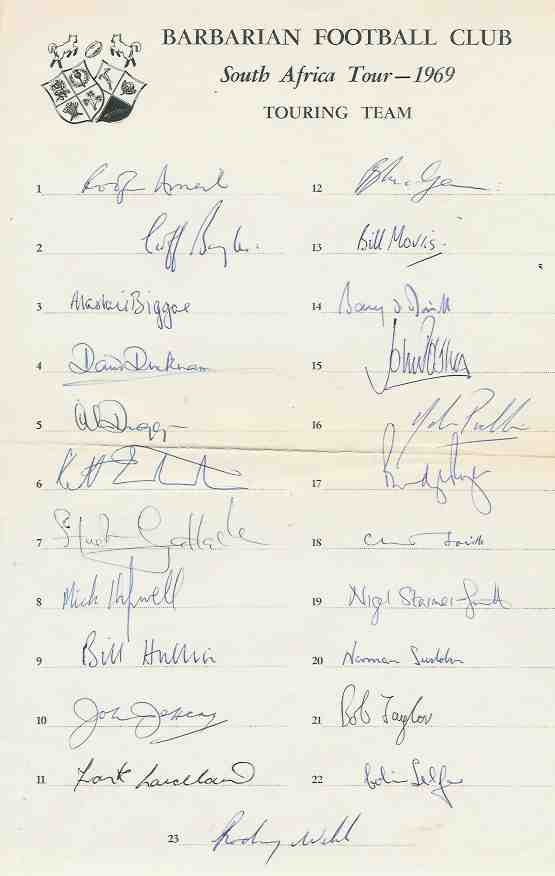 BARBARIAN FOOTBALL CLUB
South Africa Tour—1969
TOURING TEAM
1
2
3 Alastair Biggar
4 David Duckham
5
6
7 Stuart Gallacher
8 Mick Hipwell
9 Bill Hullin
10 John Jeffrey
11 Frank Laidlaw
12
13 Bill Morris.
14
15
16 John Pullin
17
18
19 Nigel Starmer-Smith
20 Norman Suddon
21 Bob Taylor
22 Colin Telfer
23 Rodney Webb